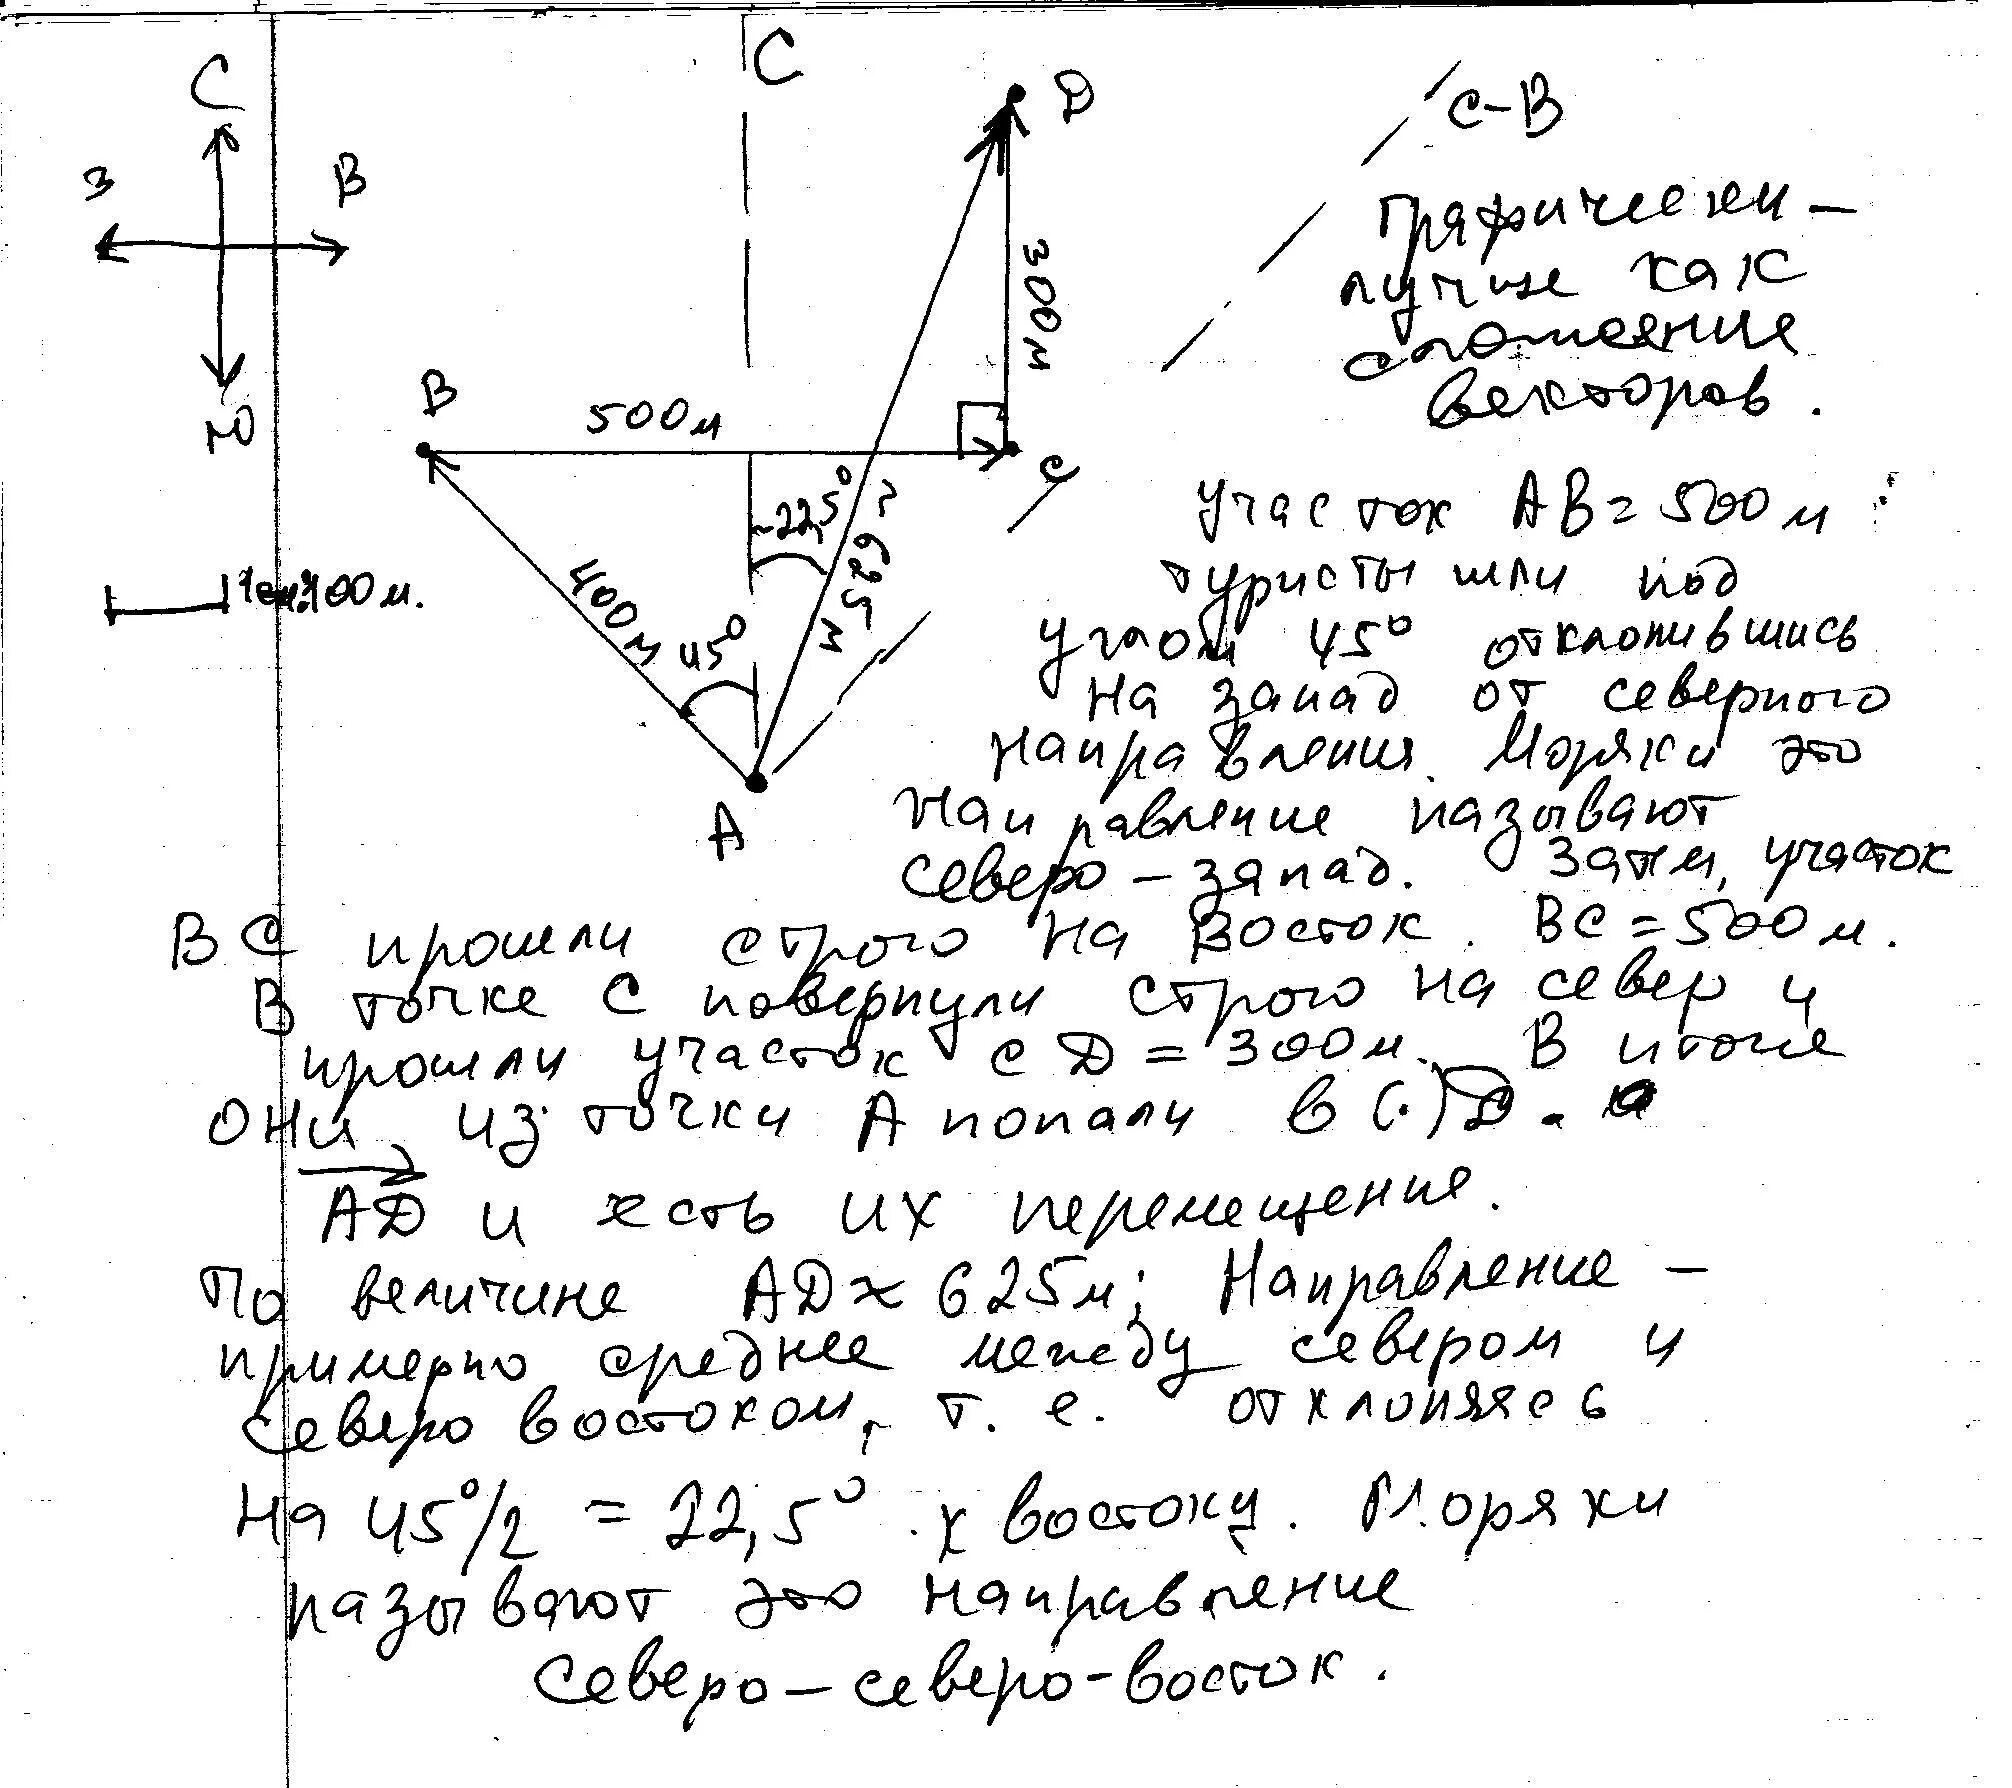 С
З
В
Ю
1см=100м.
С
D
С-В
300м
В
500м
С
~22,5°
~625м
400м
45°
А
Графически –
лучше как
сложение
векторов.
участок АВ=500м
туристы шли под
углом 45° отклонившись
на запад от северного
направления. Моряки это
направление называют
северо-запад. Затем, участок
ВС прошли строго на восток. ВС=500м.
В точке С повернули строго на север и
прошли участок СD=300м. В итоге
они из точки А попали в (·)D.
AD и есть их перемещение.
По величине AD≈625м; Направление –
примерно среднее между севером и
северо востоком, т. е. отклоняясь
на 45°/2 = 22,5° к востоку. Моряки
называют это направление
Северо-северо-восток.